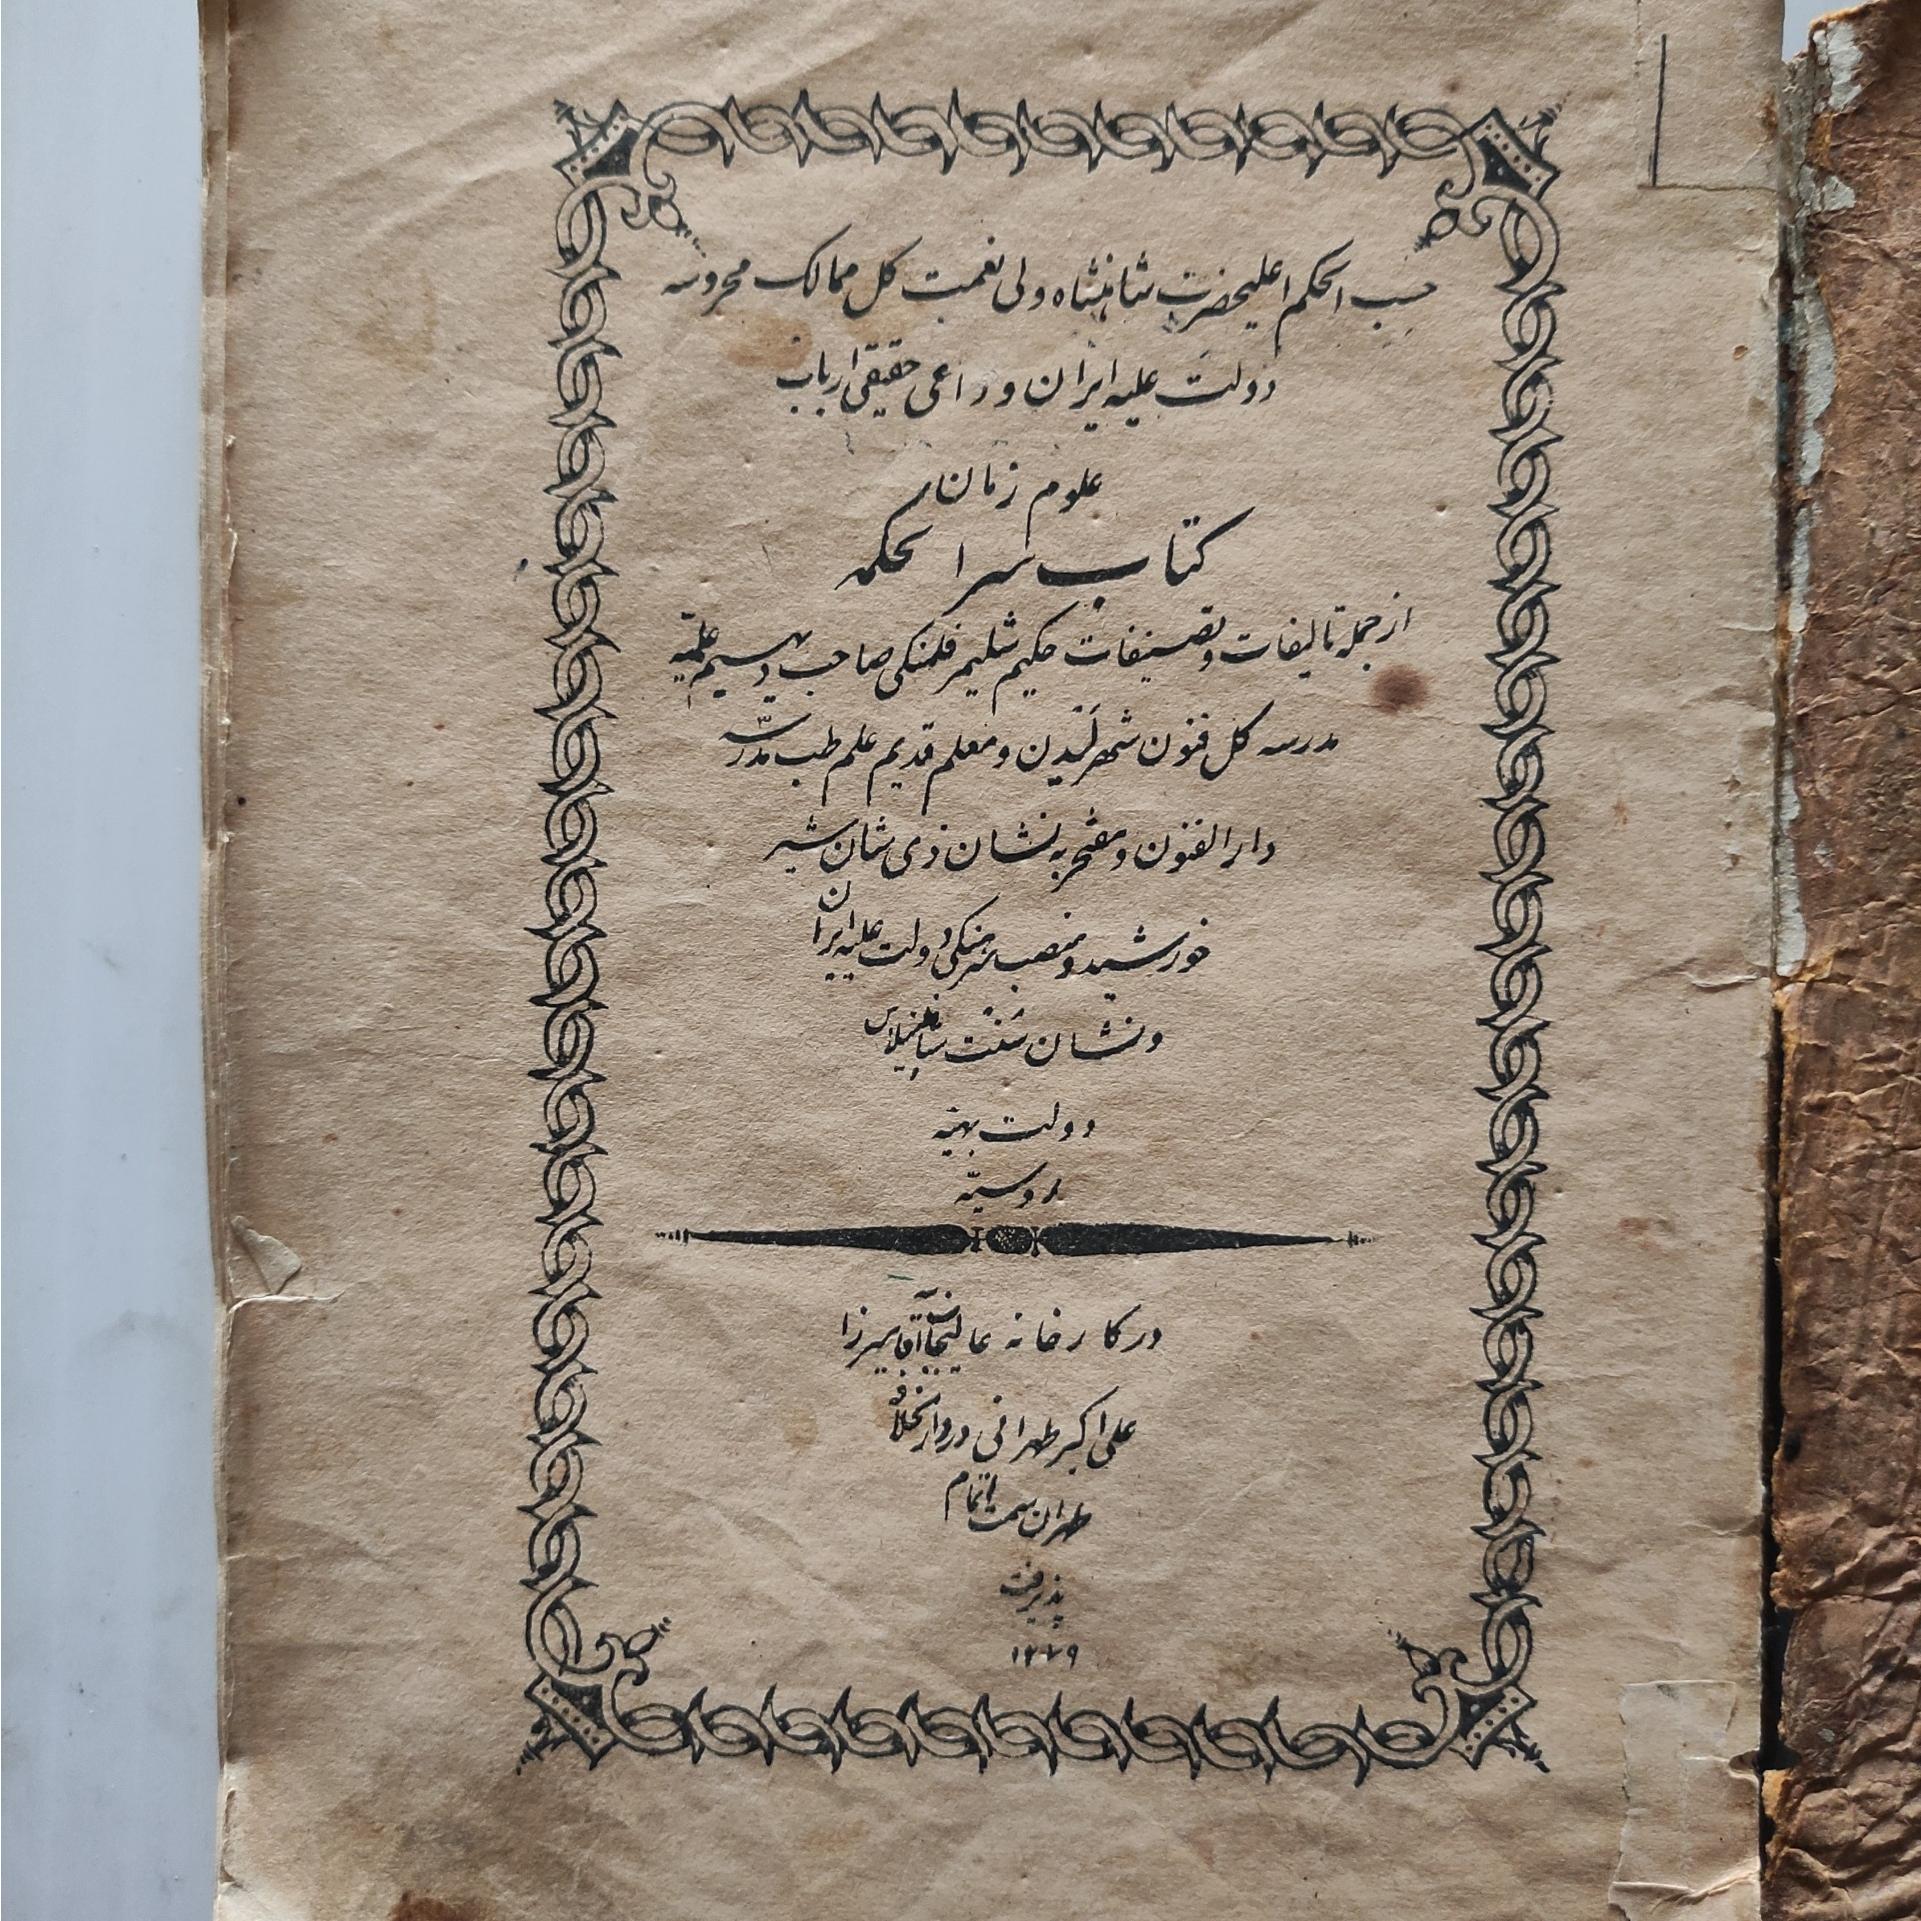 حسب الحکم اعلیحضرت شاهنشاه ولی نعمت کل ممالک محروسه
دولت علیه ایران و راعی حقیقی ارباب
علوم زمان
کتاب سر الحکمه
از جمله تالیفات و تصنیفات حکیم شلیمر فلمنکی صاحب دیهیم علمیّه
مدرسه کل فنون شهر لَیدن و معلم قدیم علم طب مدرسه
دار الفنون و مفتخر به نشان ذی شان شیر
خورشید و منصب سرهنکی دولت علیه ایران
و نشان سَنْت ستانیسلاس
دولت بهیّه
روسیّه
در کارخانه عالیجناب آقا میرزا
علی اکبر طهرانی در دار الخلافه
طهران سمت اتمام
پذیرفت
۱۲۷۹